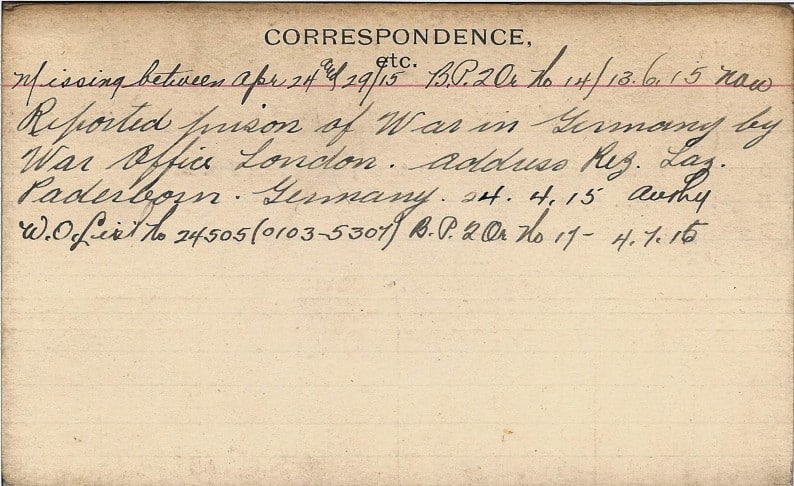 CORRESPONDENCE,
etc.
Missing between Apr 24 and 29/15 B.P. 2 Or No 14/13.6.15 now
Reported prison of War in Germany by
War Office London. address Rez. Laz.
Paderborn. Germany. 4. 4. 15 Authy
W.O. List No 24505 (0103-5307) B.P. 2 Or No 17- 4.7.15